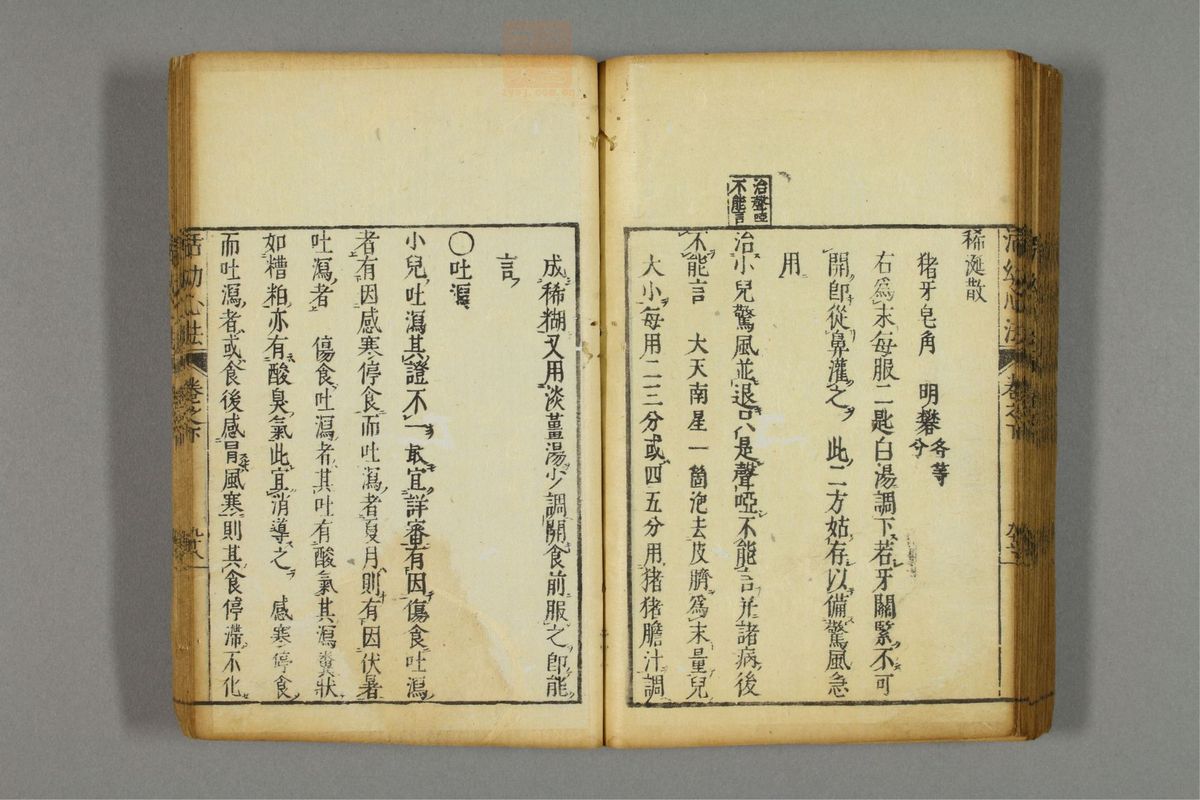 稀涎散
猪牙皂角　明礬各等分
右爲末每服二匙白湯調下若牙關緊不可
開卽從鼻灌之　此二方姑存以備驚風急
用
治聲啞不能言
治小兒驚風並退只是聲啞不能言并諸病後
不能言　大天南星一箇泡去皮臍爲末量兒
大小每用二三分或四五分用猪猪膽汁調
成稀糊又用淡薑湯少調開食前服之卽能
言
〇吐瀉
小兒吐瀉其證不一最宜詳審有因傷食吐瀉
者有因感寒停食而吐瀉者夏月則有因伏暑
吐瀉者　傷食吐瀉者其吐有酸氣其瀉糞狀
如糟粕亦有酸臭氣此宜消導之　感寒停食
而吐瀉者或食後感冒風寒則其食停滯不化
活幼心法
卷之下